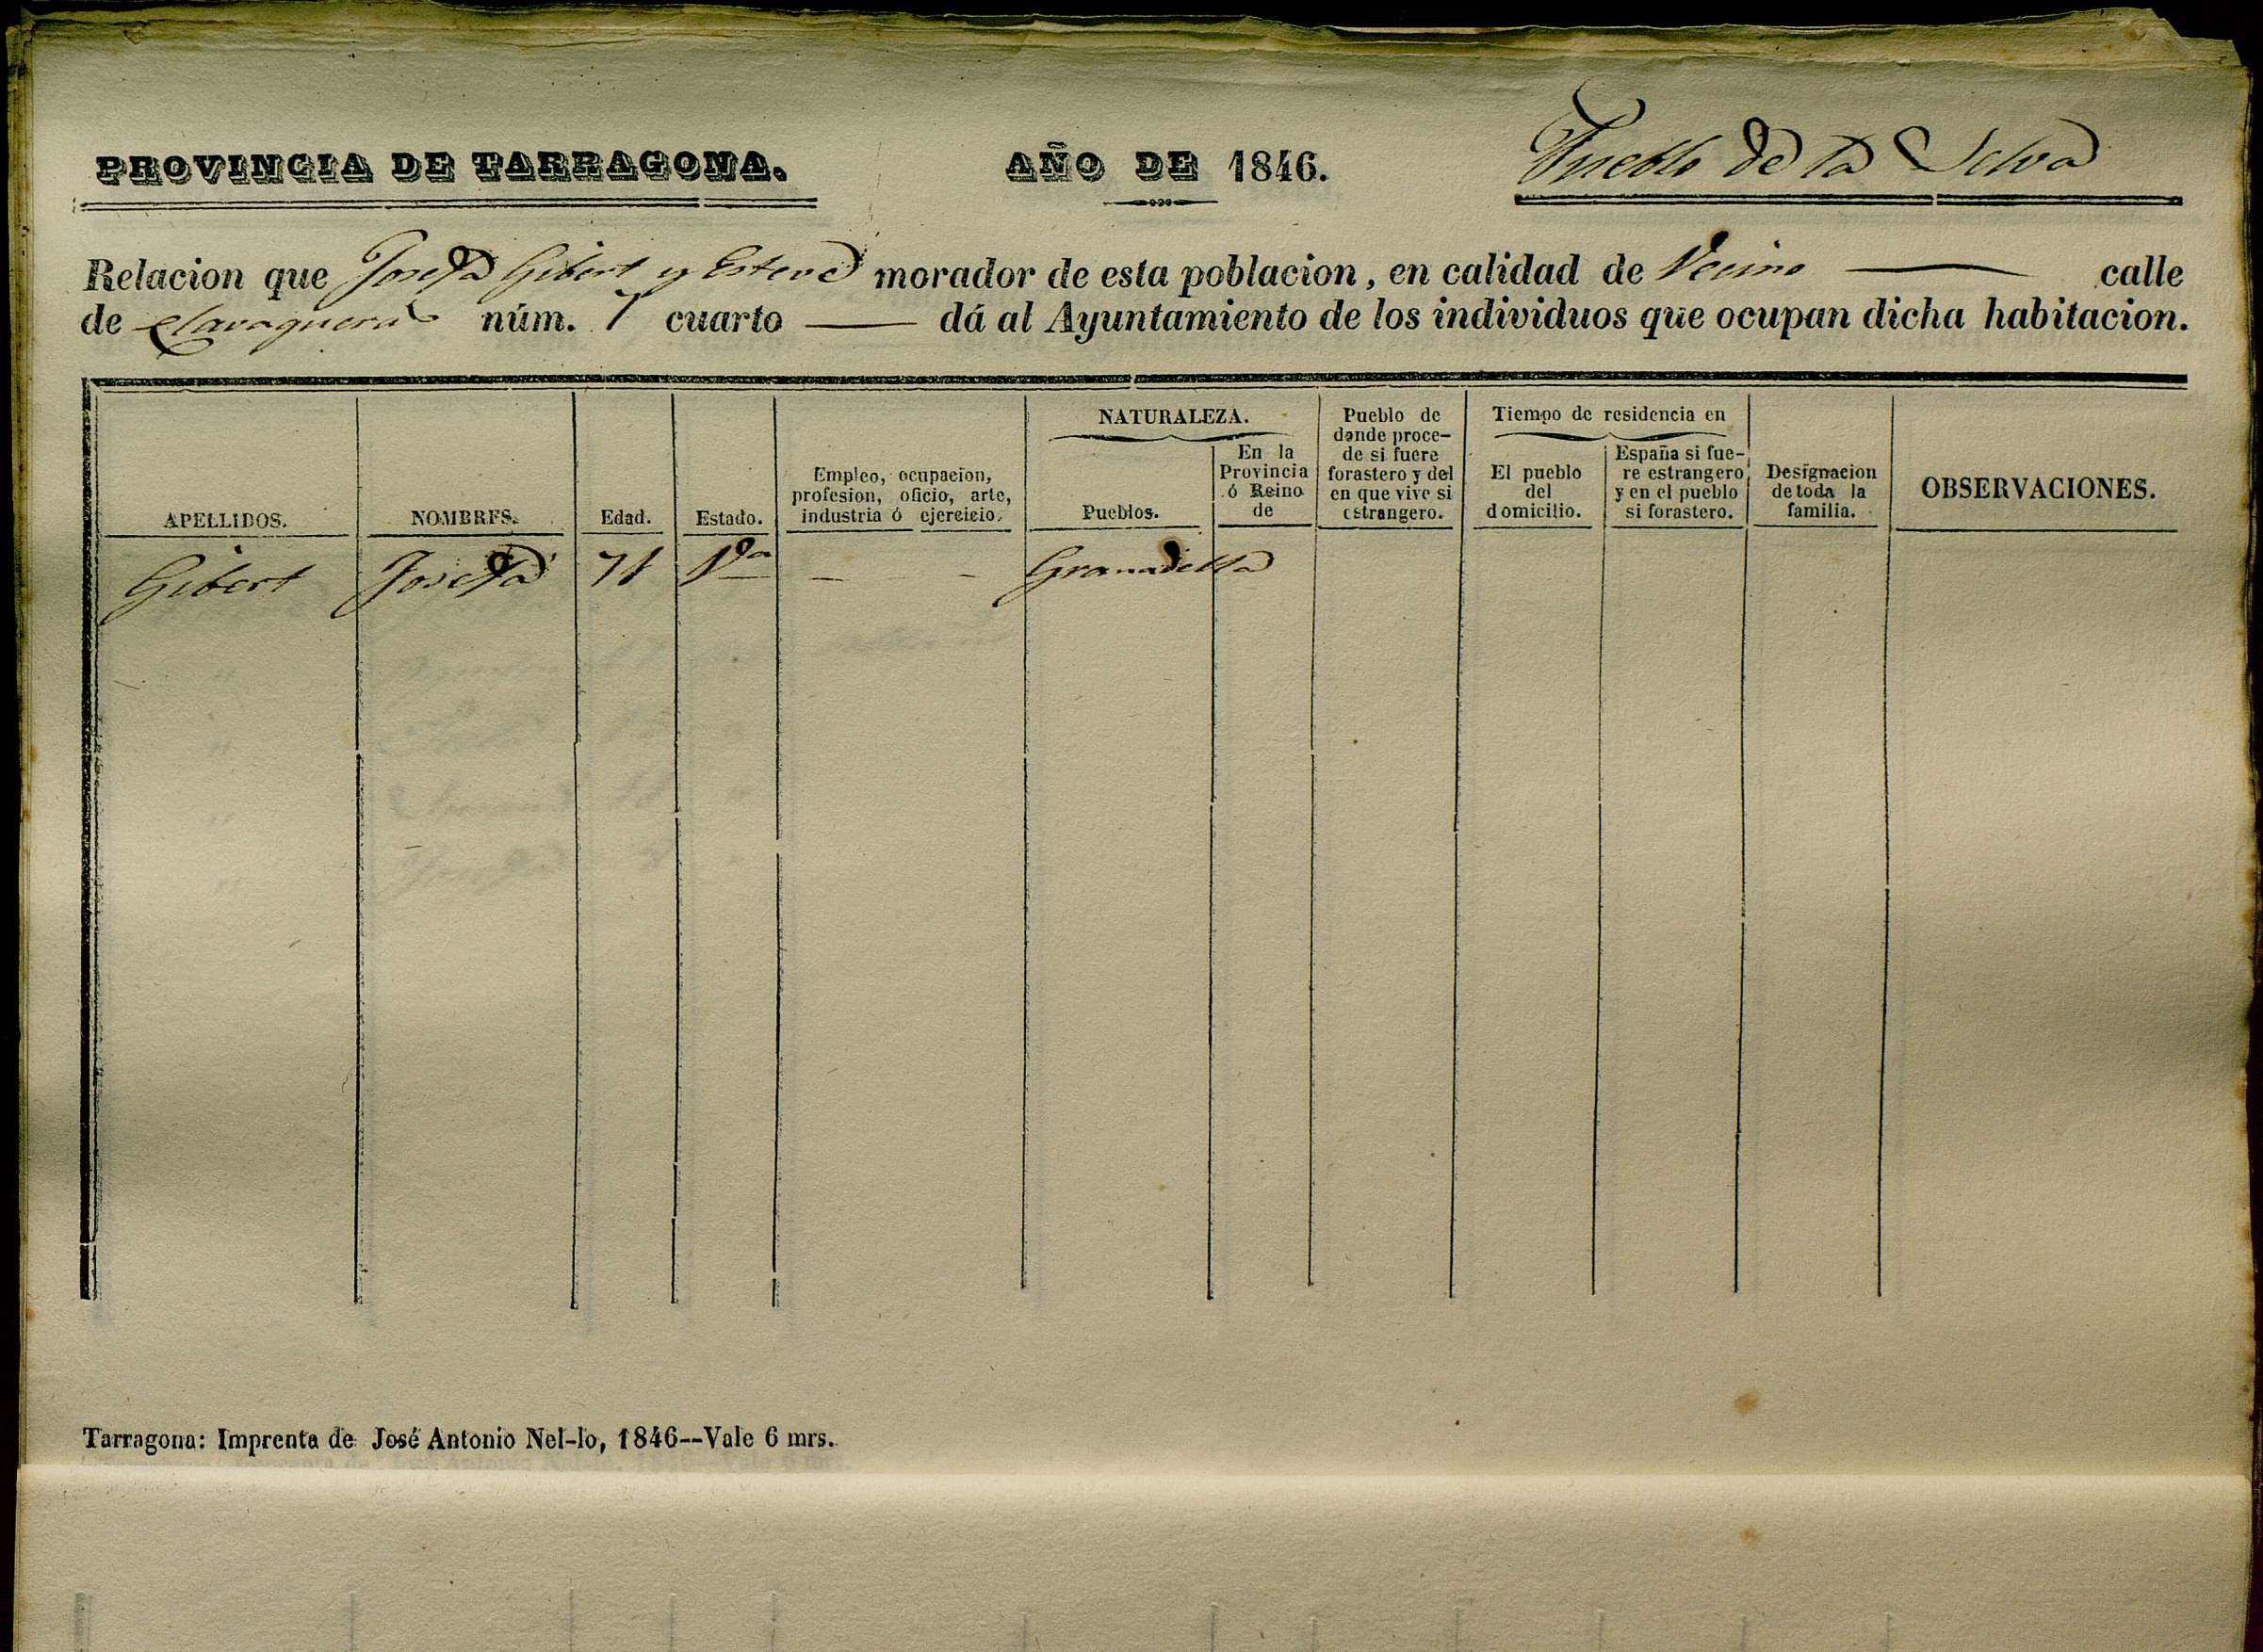 PROVINCIA DE TARRAGONA. AÑO DE 1846. Pueblo de la Selva
Relacion que Josefa Gibert y Esteve morador de esta poblacion, en calidad de Vecino — calle
de núm. 7 cuarto — dá al Ayuntamiento de los individuos que ocupan dicha habitacion.
APELLIDOS.
NOMBRES.
Edad.
Estado.
Empleo, ocupacion,
profesion, oficio, arte,
industria ó ejercicio.
NATURALEZA.
Pueblos.
En la
Provincia
ó Reino
de
Pueblo de
donde proce-
de si fuere
forastero y del
en que vive si
estrangero.
Tiempo de residencia en
El pueblo
del
domicilio.
España si fue-
re estrangero
y en el pueblo
si forastero.
Designacion
de toda la
familia.
OBSERVACIONES.
Gibert Josefa 71 Vda — — Granadella
Tarragona: Imprenta de José Antonio Nel-lo, 1846--Vale 6 mrs.